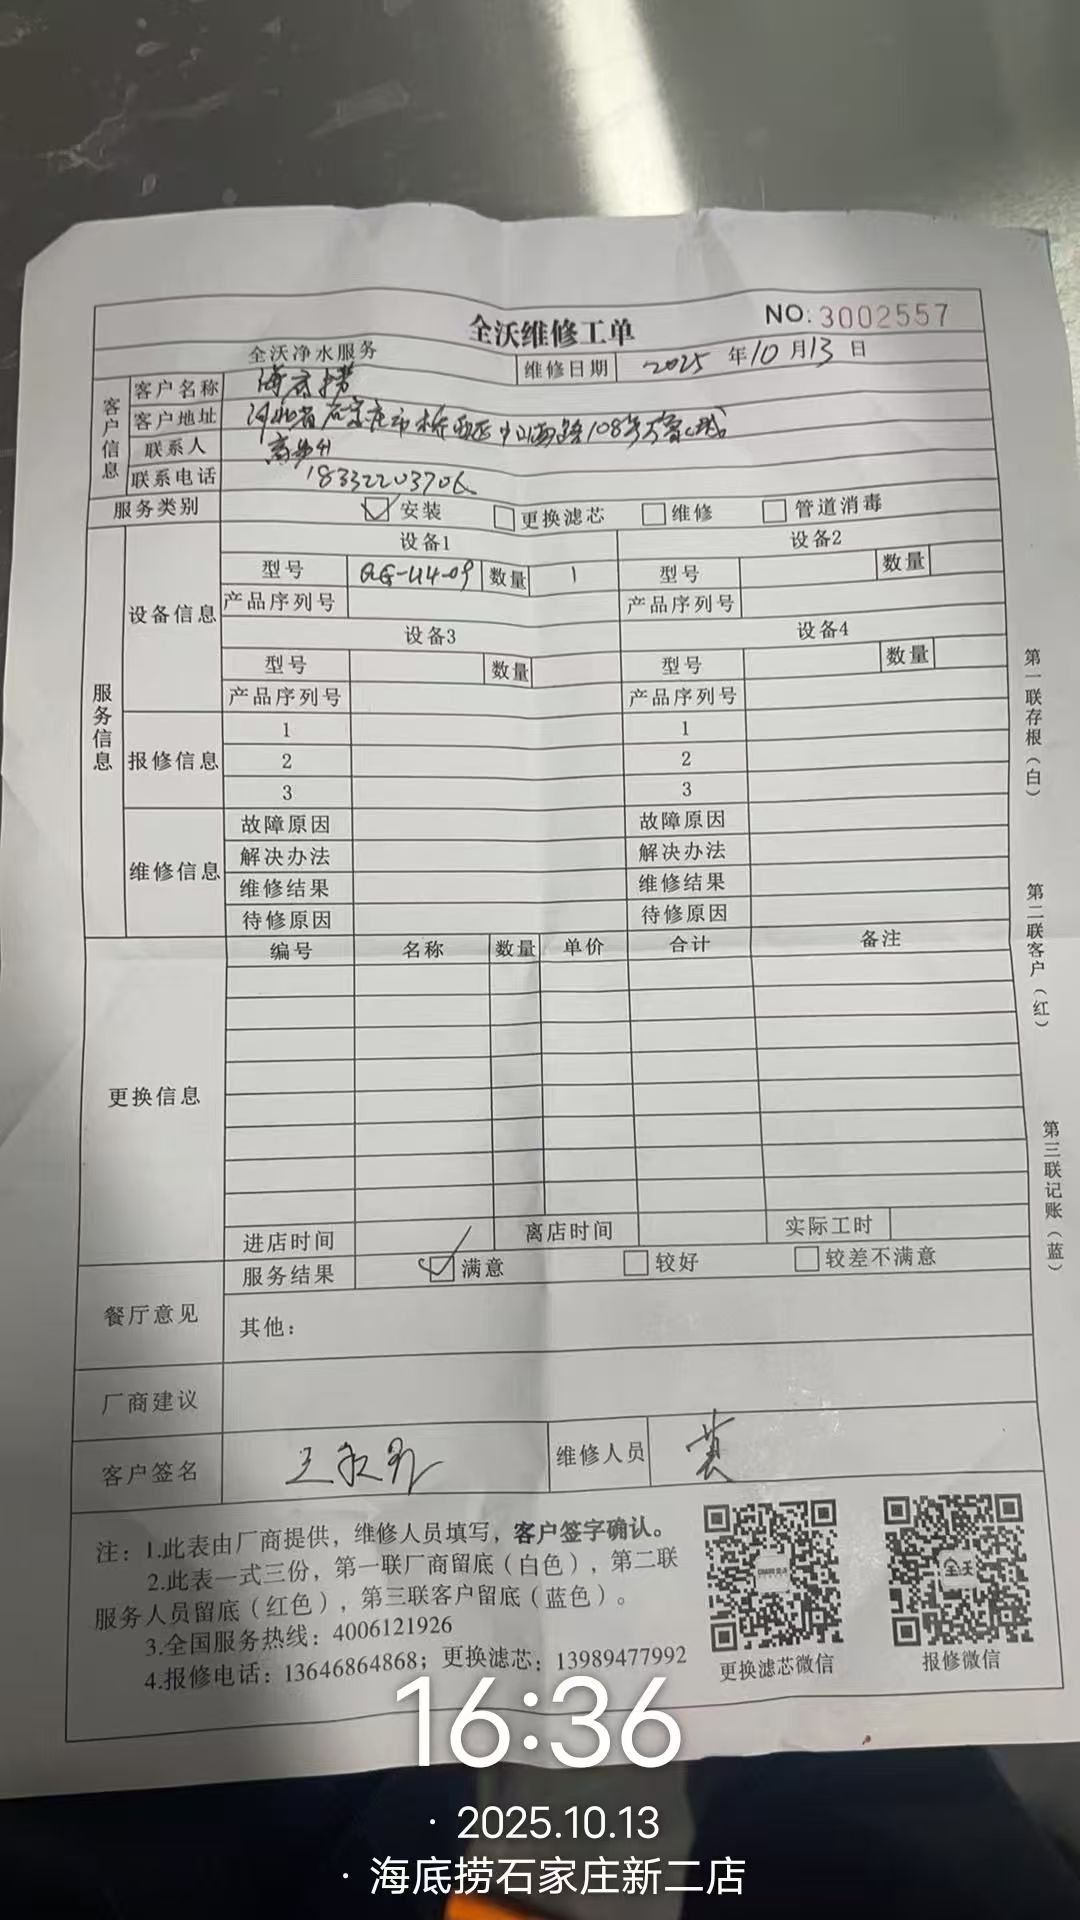 全沃维修工单
NO:3002557
全沃净水服务
维修日期 2025 年 10 月 13 日
客户信息
客户名称 海底捞
客户地址 河北省石家庄市桥西区中山西路108号万象城
联系人
联系电话 18332203706
服务类别 ☑安装 □更换滤芯 □维修 □管道消毒
服务信息
设备信息
设备1 设备2
型号 数量 1 型号 数量
产品序列号 产品序列号
设备3 设备4
型号 数量 型号 数量
产品序列号 产品序列号
报修信息
1 1
2 2
3 3
维修信息
故障原因 故障原因
解决办法 解决办法
维修结果 维修结果
待修原因 待修原因
更换信息
编号 名称 数量 单价 合计 备注
进店时间 离店时间 实际工时
餐厅意见
服务结果 ☑满意 □较好 □较差不满意
其他：
厂商建议
客户签名
维修人员
第一联存根（白）
第二联客户（红）
第三联记账（蓝）
注：1.此表由厂商提供，维修人员填写，客户签字确认。
2.此表一式三份，第一联厂商留底（白色），第二联
服务人员留底（红色），第三联客户留底（蓝色）。
3.全国服务热线：4006121926
4.报修电话：13646864868；更换滤芯：13989477992
更换滤芯微信
全沃
报修微信
16:36
· 2025.10.13
· 海底捞石家庄新二店